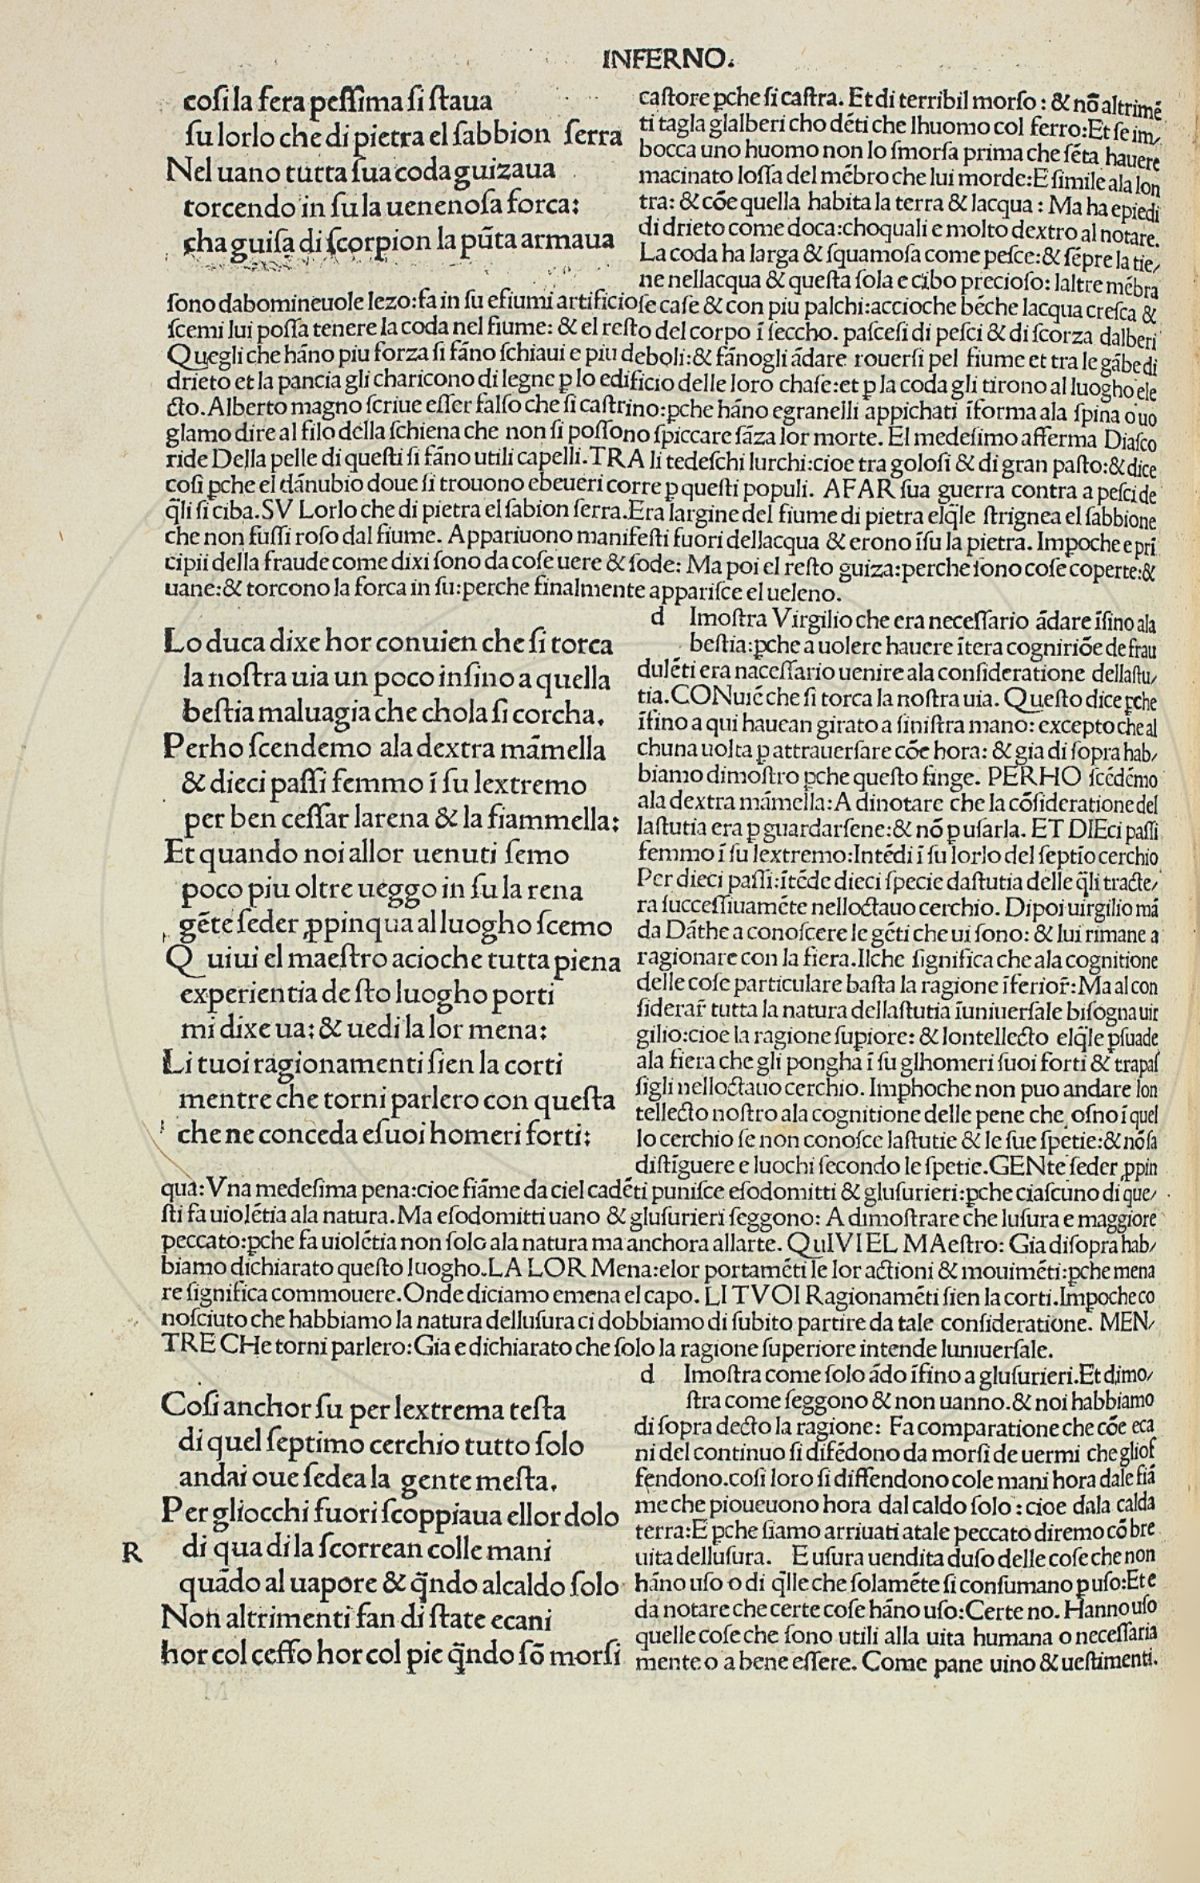 INFERNO.
cosi la fera pessima si staua
su lorlo che di pietra el sabbion serra
Nel uano tutta sua coda guizaua
torcendo in su la uenenosa forca:
cha guisa di scorpion la pūta armaua
castore ꝑche si castra. Et di terribil morso: & nō altrimē
ti tagla glalberi cho dēti che lhuomo col ferro: Et se im/
bocca uno huomo non lo smorsa prima che sēta hauere
macinato lossa del mēbro che lui morde: E simile ala lon
tra: & cōe quella habita la terra & lacqua: Ma ha epiedi
di drieto come doca: choquali e molto dextro al notare.
La coda ha larga & squamosa come pesce: & sēpre la tie/
ne nellacqua & questa sola e cibo precioso: laltre mēbra
sono dabomineuole lezo: fa in su efiumi artificiose case & con piu palchi: accioche bēche lacqua cresca &
scemi lui possa tenere la coda nel fiume: & el resto del corpo ī seccho. pascesi di pesci & di scorza dalberi
Quegli che hāno piu forza si fāno schiaui e piu deboli: & fānogli ādare rouersi pel fiume et tra le gābe di
drieto et la pancia gli charicono di legne ꝑ lo edificio delle loro chase: et ꝑ la coda gli tirono al luogho ele
cto. Alberto magno scriue esser falso che si castrino: ꝑche hāno egranelli appichati īforma ala spina o uo
glamo dire al filo della schiena che non si possono spiccare sāza lor morte. El medesimo afferma Diasco
ride Della pelle di questi si fāno utili capelli. TRA li tedeschi lurchi: cioe tra golosi & di gran pasto: & dice
cosi ꝑche el dānubio doue si trouono ebeueri corre ꝑ questi populi. A FAR sua guerra contra a pesci de
q̄li si ciba. SV Lorlo che di pietra el sabion serra. Era largine del fiume di pietra elq̄le strignea el sabbione
che non fussi roso dal fiume. Appariuono manifesti fuori dellacqua & erono īsu la pietra. Impoche e pri
cipii della fraude come dixi sono da cose uere & sode: Ma poi el resto guiza: perche sono cose coperte: &
uane: & torcono la forca in su: perche finalmente apparisce el ueleno.
Lo duca dixe hor conuien che si torca
la nostra uia un poco insino a quella
bestia maluagia che chola si corcha.
Perho scendemo ala dextra māmella
& dieci passi femmo ī su lextremo
per ben cessar larena & la fiammella:
Et quando noi allor uenuti semo
poco piu oltre ueggo in su la rena
gēte seder ꝓpinqua al luogho scemo
Quiui el maestro acioche tutta piena
experientia de sto luogho porti
mi dixe ua: & uedi la lor mena:
Li tuoi ragionamenti sien la corti
mentre che torni parlero con questa
che ne conceda esuoi homeri forti:
d Imostra Virgilio che era necessario ādare īsino ala
bestia: ꝑche a uolere hauere ītera cogniriōe de frau
dulēti era nacessario uenire ala consideratione dellastu/
tia. CONuiē che si torca la nostra uia. Questo dice ꝑche
īsino a qui hauean girato a sinistra mano: excepto che al
chuna uolta ꝑ attrauersare cōe hora: & gia di sopra hab/
biamo dimostro ꝑche questo finge. PERHO scēdēmo
ala dextra māmella: A dinotare che la cōsideratione del
lastutia era ꝑ guardarsene: & nō ꝑ usarla. ET DIEci passi
femmo ī su lextremo: Intēdi ī su lorlo del septīo cerchio
Per dieci passi: ītēde dieci specie dastutia delle q̄li tracte/
ra successiuamēte nelloctauo cerchio. Dipoi uirgilio mā
da Dāthe a conoscere le gēti che ui sono: & lui rimane a
ragionare con la fiera. Ilche significa che ala cognitione
delle cose particulare basta la ragione īferior̄: Ma al con
siderar̄ tutta la natura dellastutia īuniuersale bisogna uir
gilio: cioe la ragione supiore: & lontellecto elq̄le ꝑsuade
ala fiera che gli pongha ī su glhomeri suoi forti & trapas
sigli nelloctauo cerchio. Imphoche non puo andare lon
tellecto nostro ala cognitione delle pene che osno ī quel
lo cerchio se non conosce lastutie & le sue spetie: & nō sa
distīguere e luochi secondo le spetie. GENte seder ꝓpin
qua: Vna medesima pena: cioe fiāme da ciel cadēti punisce esodomitti & glusurieri: ꝑche ciascuno di que/
sti fa uiolētia ala natura. Ma esodomitti uano & glusurieri seggono: A dimostrare che lusura e maggiore
peccato: ꝑche fa uiolētia non solo ala natura ma anchora allarte. QuIVI EL MAestro: Gia di sopra hab/
biamo dichiarato questo luogho. LA LOR Mena: elor portamēti le lor actioni & mouimēti: ꝑche mena
re significa commouere. Onde diciamo emena el capo. LI TVOI Ragionamēti sien la corti. Impoche co
nosciuto che habbiamo la natura dellusura ci dobbiamo di subito partire da tale consideratione. MEN/
TRE CHe torni parlero: Gia e dichiarato che solo la ragione superiore intende luniuersale.
Cosi anchor su per lextrema testa
di quel septimo cerchio tutto solo
andai oue sedea la gente mesta.
Per gliocchi fuori scoppiaua ellor dolo
R di qua di la scorrean colle mani
quādo al uapore & q̄ndo al caldo solo
Non altrimenti fan di state ecani
hor col ceffo hor col pie q̄ndo sō morsi
d Imostra come solo ādo īsino a glusurieri. Et dimo/
stra come seggono & non uanno. & noi habbiamo
di sopra decto la ragione: Fa comparatione che cōe eca
ni del continuo si difēdono da morsi de uermi che gliof
fendono. cosi loro si diffendono cole mani hora dale fiā
me che pioueuono hora dal caldo solo: cioe dala calda
terra: E ꝑche siamo arriuati a tale peccato diremo cō bre
uita dellusura. E usura uendita duso delle cose che non
hāno uso o di q̄lle che solamēte si consumano ꝑ uso: Et e
da notare che certe cose hāno uso: Certe no. Hanno uso
quelle cose che sono utili alla uita humana o necessaria
mente o a bene essere. Come pane uino & uestimenti.